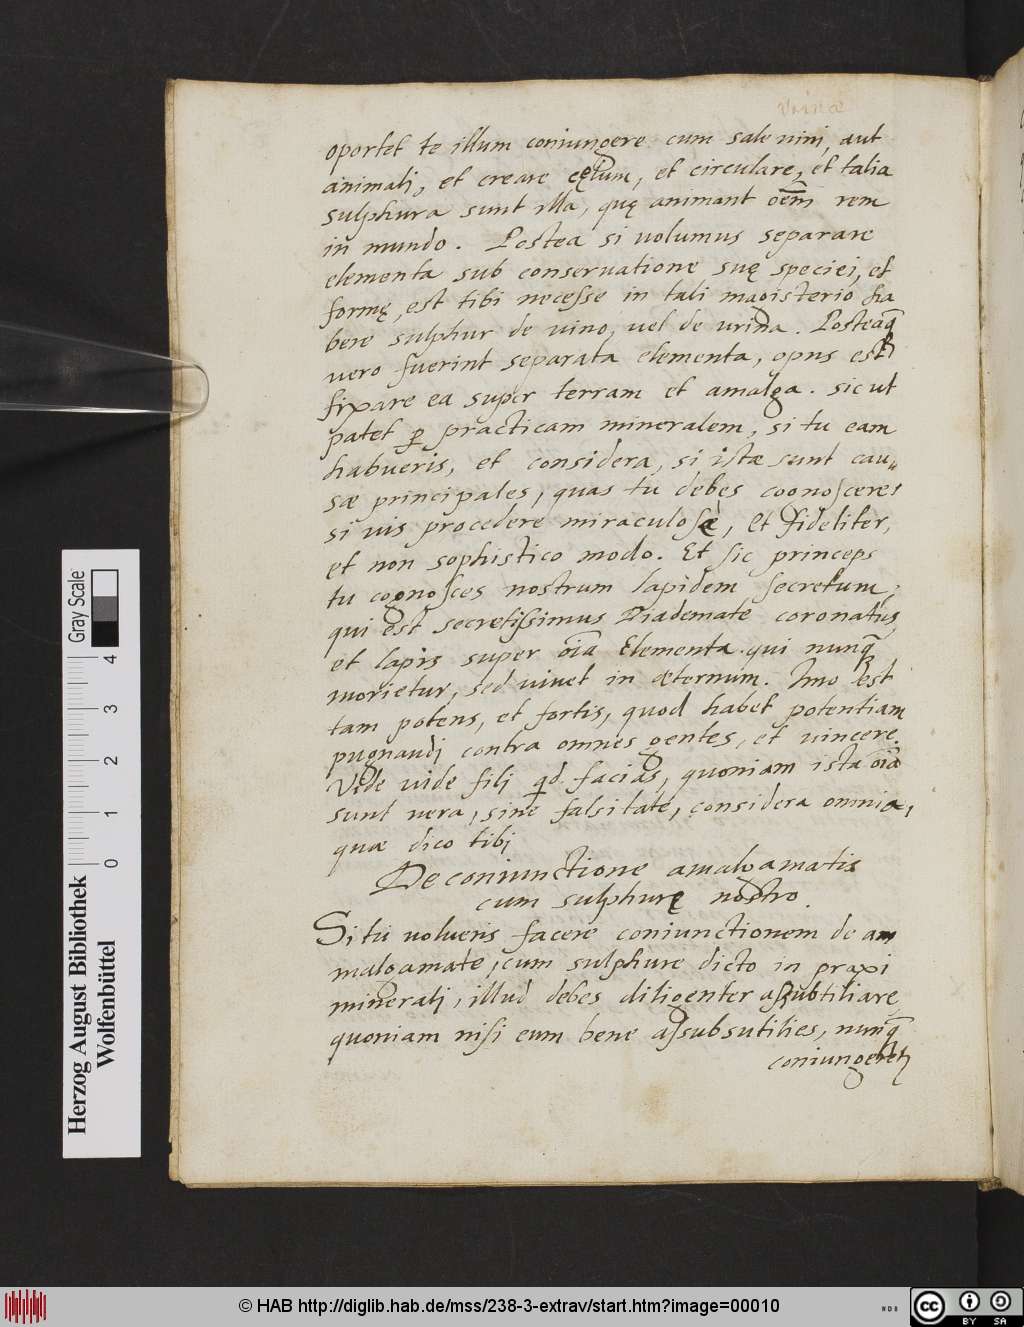 oportet te illum coniungere cum sale vini, aut
animali, et creare cęlum, et circulare, et talia
sulphura sunt illa, quę animant oēm rem
in mundo. Postea si volumus separare
elementa sub conseruatione suę speciei, et
formę, est tibi necesse in tali magisterio ha
bere sulphur de vino, vel de urina. Posteaq̄
vero fuerint separata elementa, opus est
fixare ea super terram et amalga. sic ut
patet p̱ practicam mineralem, si tu eam
habueris, et considera, si istæ sunt cau„
sæ principales, quas tu debes cognosceres
si vis procedere miraculosè, et fideliter,
et non sophistico modo. Et sic princeps
tu cognosces nostrum lapidem secretum,
qui est secretissimus Diademate coronatus
et lapis super oīa Elementa. qui nunq̄
morietur, sed vivet in æternum. Imo est
tam potens, et fortis, quod habet potentiam
pugnandi contra omnes gentes, et vincere.
Vide vide fili qd facias, quoniam ista oīa
sunt vera, sine falsitate, considera omnia,
quæ dico tibi
De coniunctione amalgamatis
cum sulphurę nostro.
Si tu volueris facere coniunctionem de am
malgamate, cum sulphure dicto in praxi
minerali, illud debes diligenter assubtiliare,
quoniam nisi eum bene assubsutilies, nunq̄
coniungeret
Herzog August Bibliothek
Wolfenbüttel
Gray Scale
0 1 2 3 4
© HAB http://diglib.hab.de/mss/238-3-extrav/start.htm?image=00010
cc BY SA